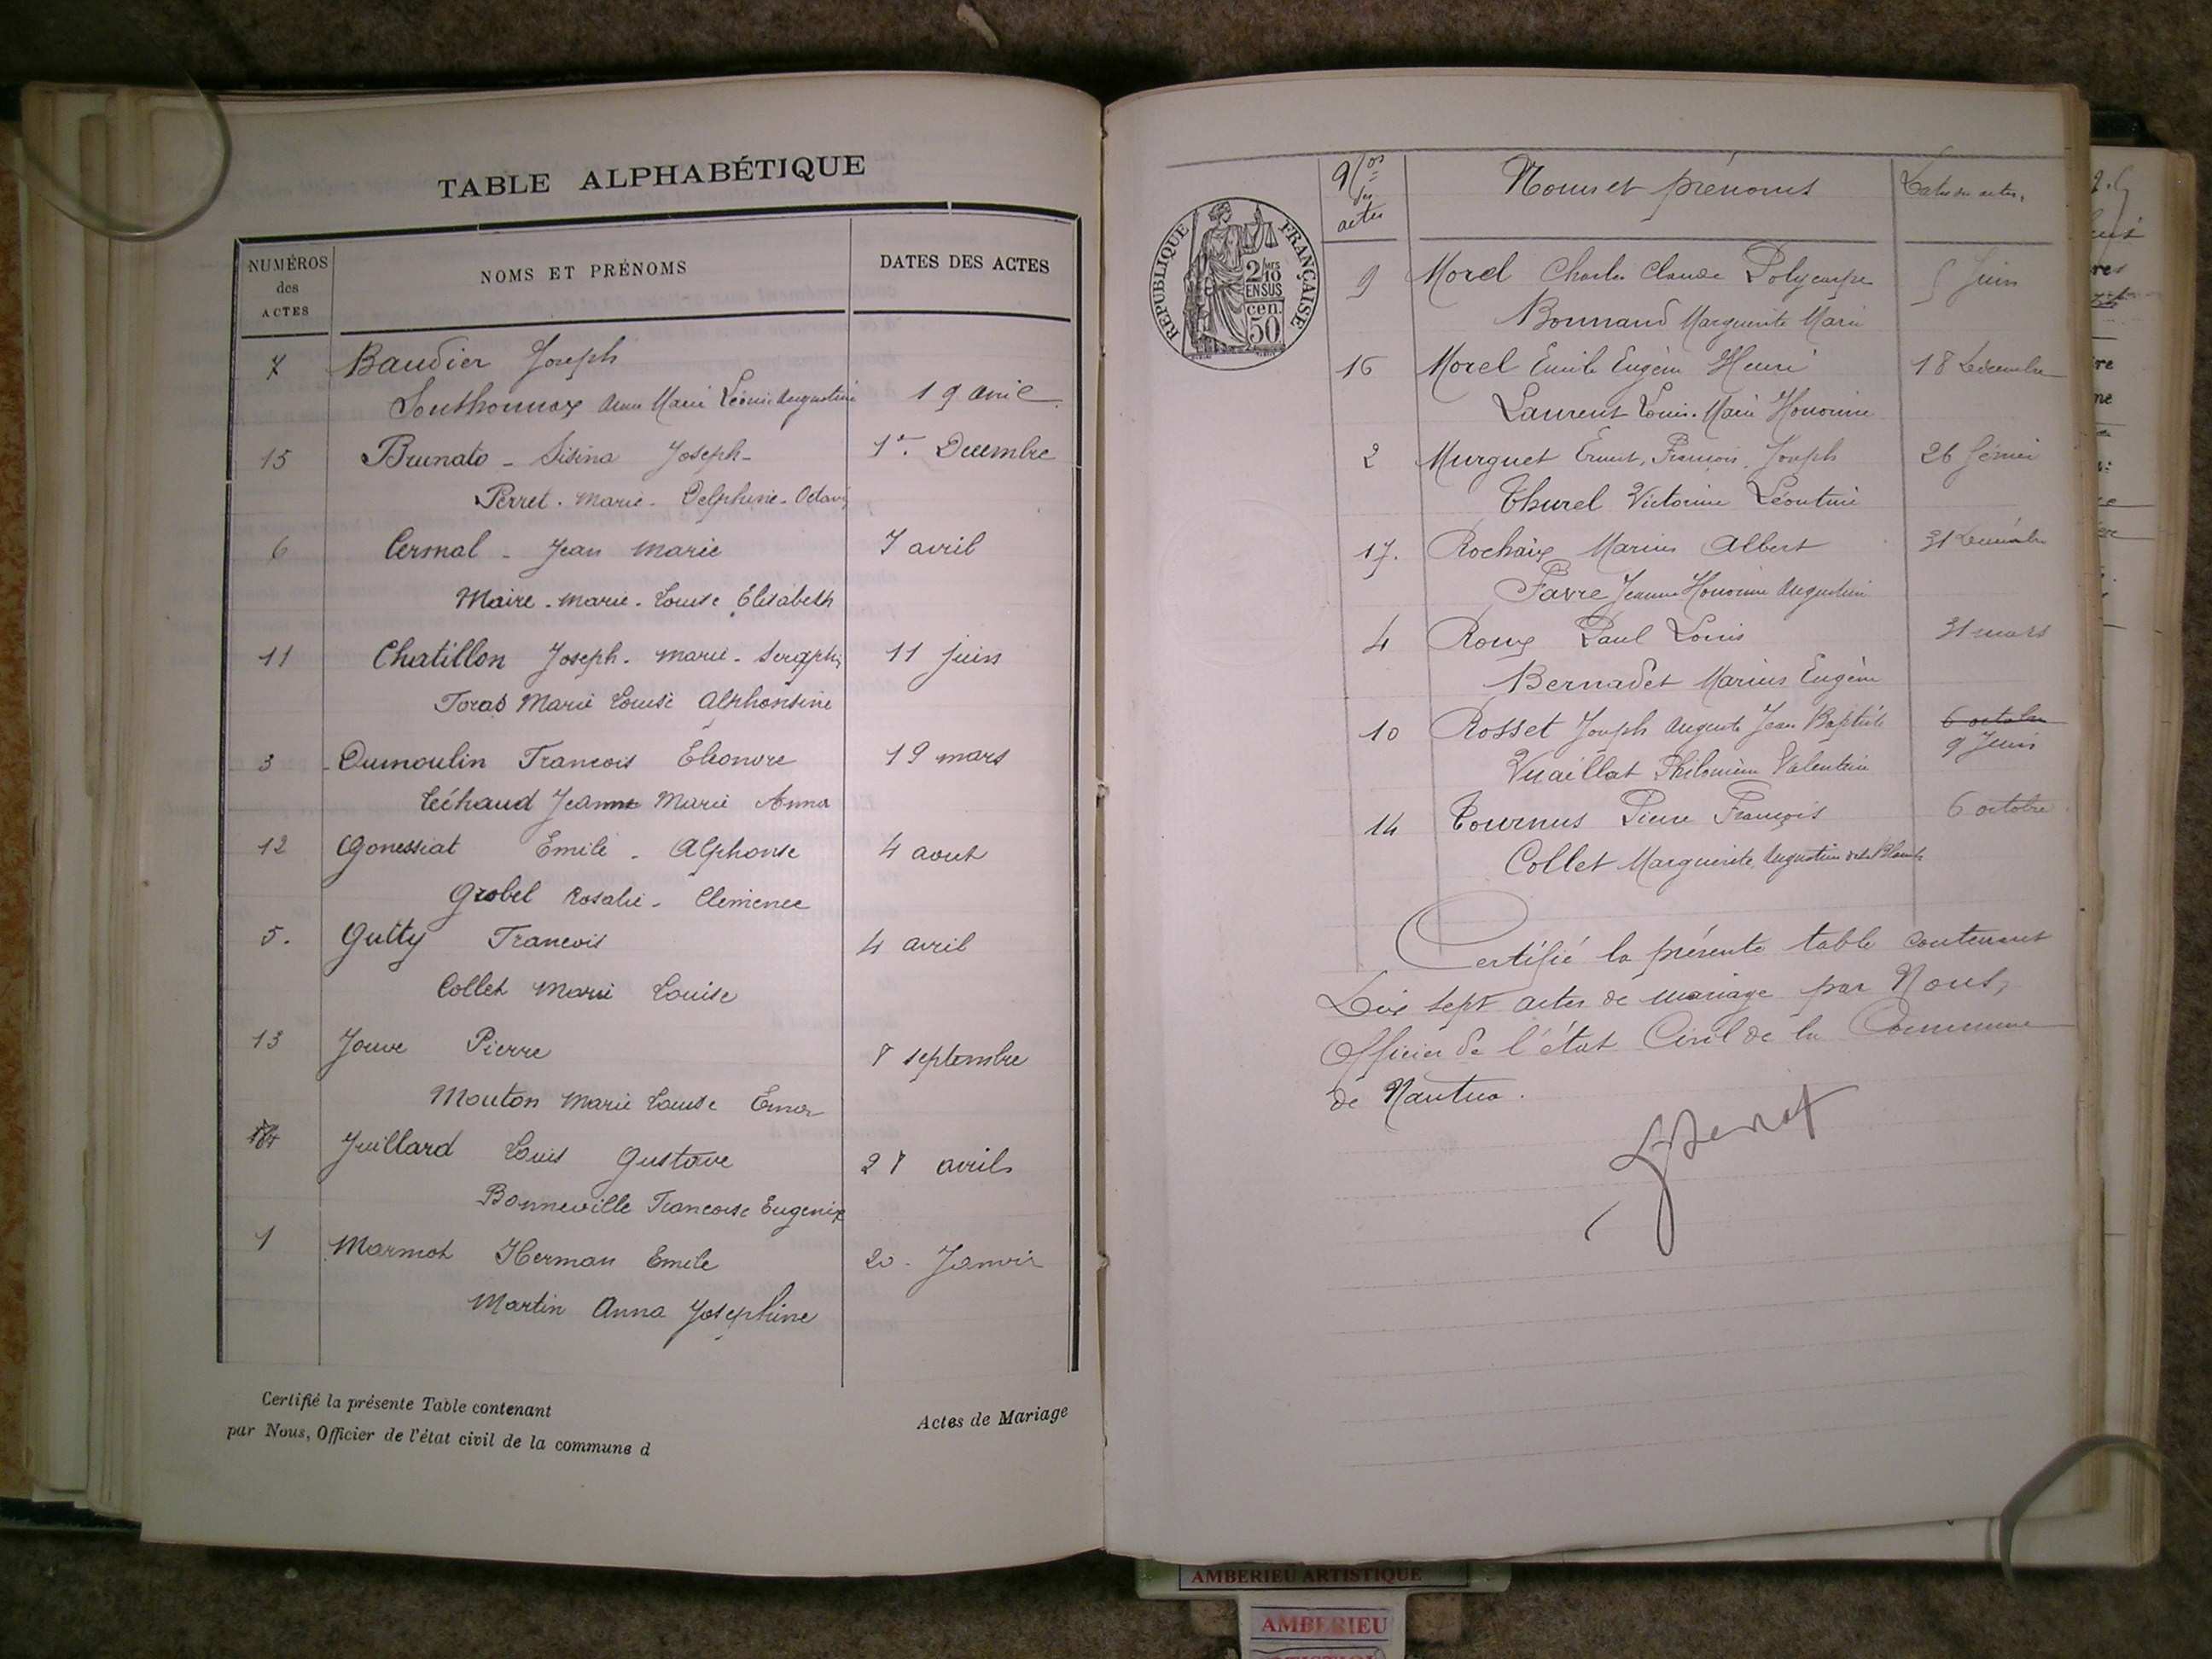 TABLE ALPHABÉTIQUE
NUMÉROS des ACTES
NOMS ET PRÉNOMS
DATES DES ACTES
7 Baudier Joseph
Southonnax Anna Marie Léonie Augustine 19 avril
15 Brunato - Sisina Joseph - 1er Decembre
Perret - Marie - Delphine - Octavie
6 Cermal - Jean Marie 7 avril
Maire - Marie - Louise Elisabeth
11 Chatillon Joseph - Marie - Seraphin 11 juin
Toras Marie Louise Alphonsine
3 Dumoulin Francois Eleonore 19 mars
Léchaud Jeanne Marie Anna
12 Gonessiat Emile - Alphonse 4 aout
Grobel Rosalie - Clemence
5. Gutty Francois 4 avril
Collet Marie Louise
13 Jouve Pierre 8 septembre
Mouton Marie Louise Erna
Juillard Louis Gustave 28 avril
Bonneville Francoise Eugenie
1 Marmot Herman Emile 20 - Janvier
Martin Anna Josephine
Certifié la présente Table contenant
Actes de Mariage
par Nous, Officier de l'état civil de la commune d
RÉPUBLIQUE FRANÇAISE
2/10
MES
EN SUS
50
cen.
Nos des actes
Noms et prénoms
Dates des actes.
9 Morel Charles Claude Polycarpe 5 juin
Bonnand Marguerite Marie
16 Morel Emile Eugène Henri 18 Décembre
Laurent Louise Marie Honorine
2 Murguet Ernest, François, Joseph 26 février
Thurel Victorine Léontine
17. Rochaix Marius Albert 31 Décembre
Favre Jeanne Honorine Augustine
4 Roux Paul Louis 31 mars
Bernadet Marius Eugène
10 Rosset Joseph Auguste Jean Baptiste 6 octobre
9 Juin
Vuaillat Philomène Valentine
14 Tournus Pierre François 6 octobre
Collet Marguerite Augustine
Certifié la présente table contenant
Dix sept actes de mariage par Nous,
Officier de l'état Civil de la Commune
de Nantua.
AMBERIEU ARTISTIQUE
AMBERIEU
ARTISTIQUE